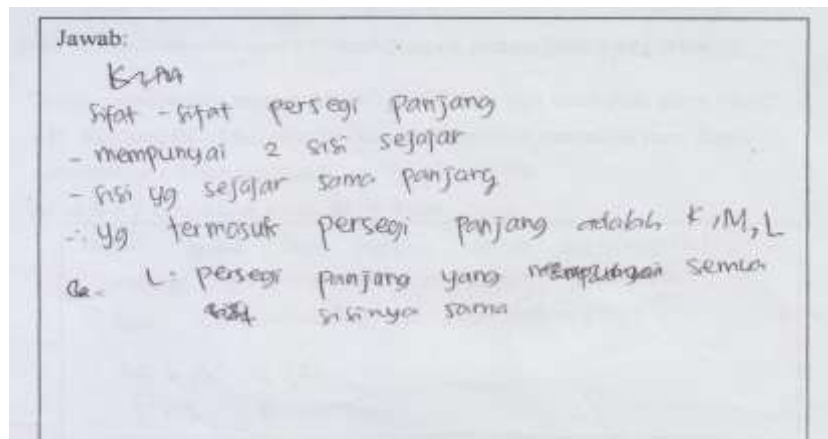 Jawab:
Sifat - sifat persegi panjang
- mempunyai 2 sisi sejajar
- sisi yg sejajar sama panjang
∴ yg termasuk persegi panjang adalah K, M, L
L: persegi panjang yang mempunyai semua
sisinya sama